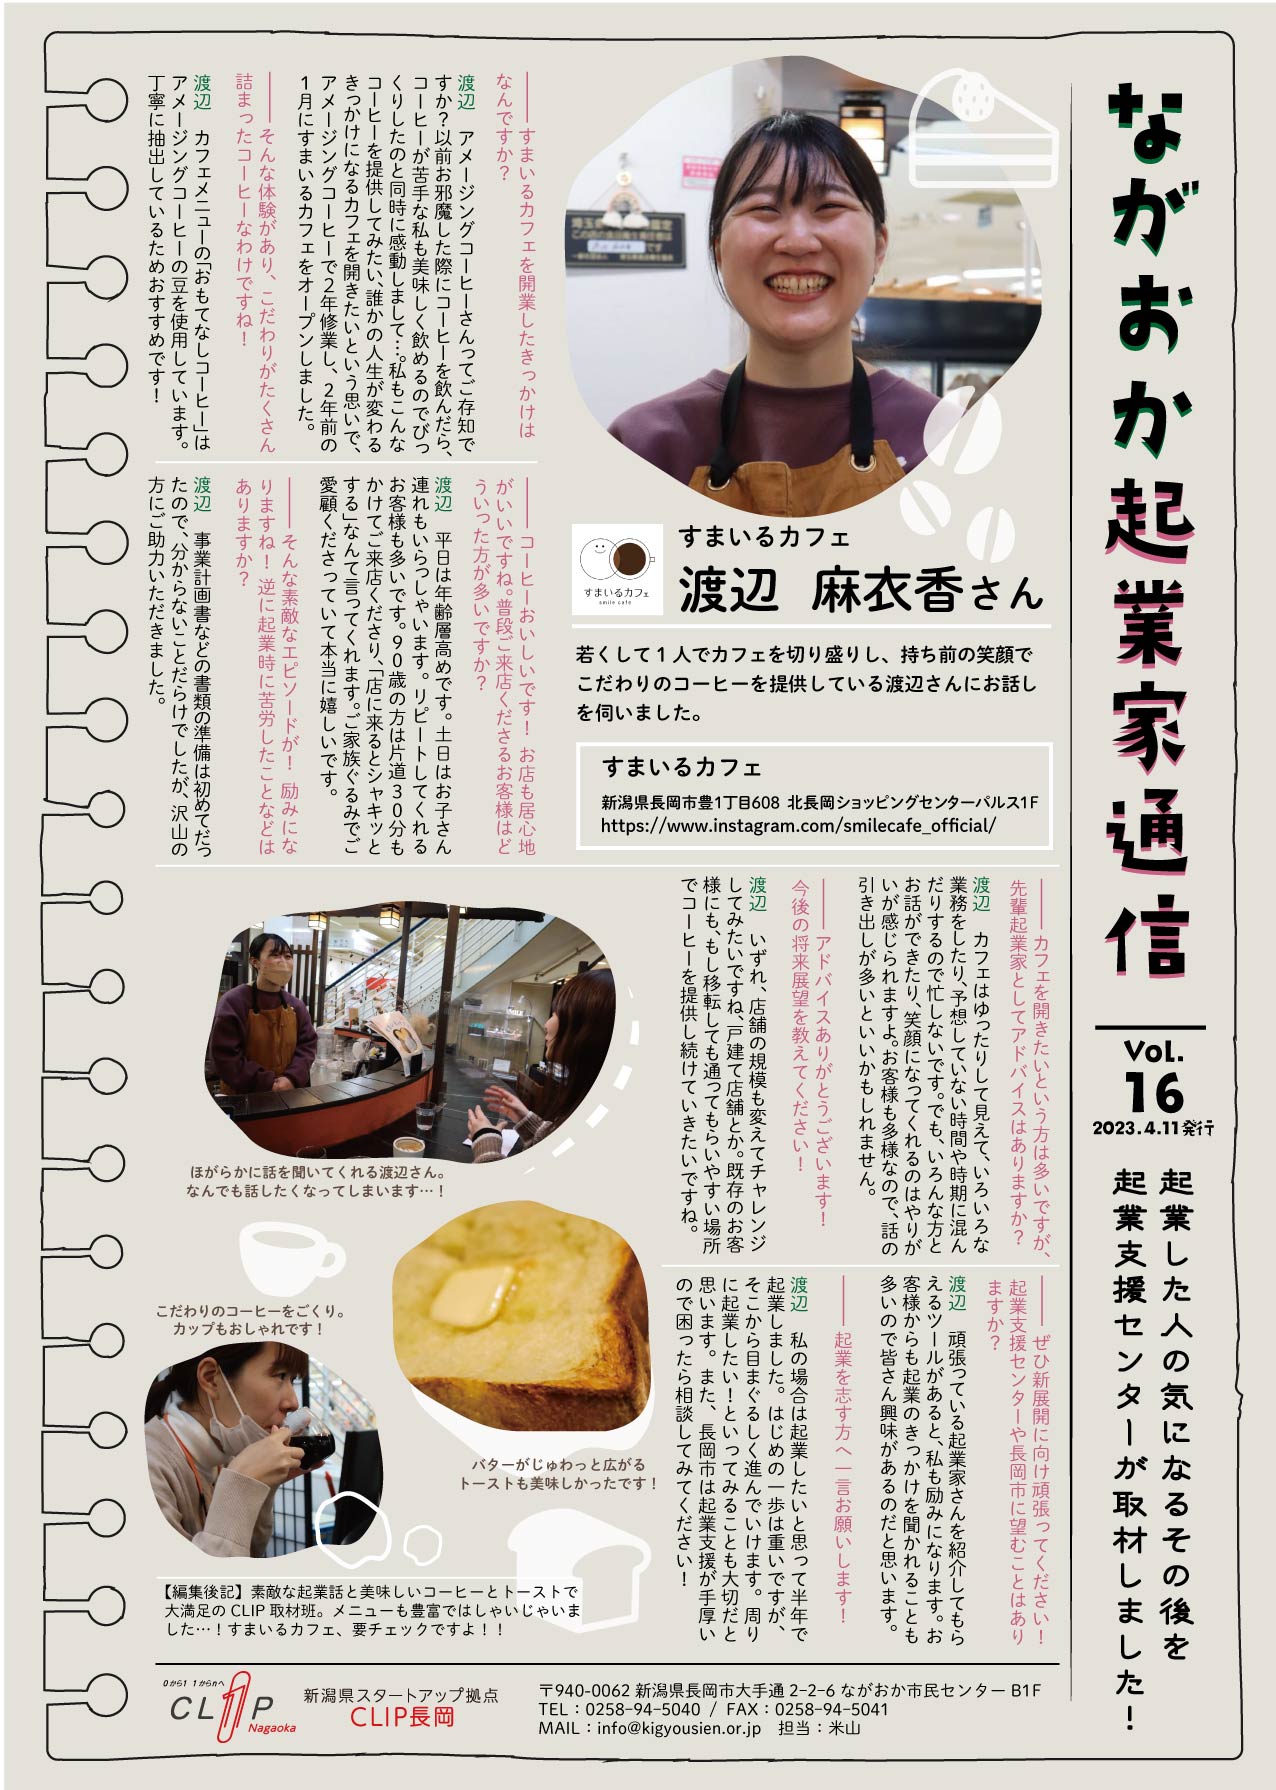 ながおか起業家通信
Vol.
16
2023.4.11発行
起業した人の気になるその後を
起業支援センターが取材しました！
すまいるカフェ
smile cafe
すまいるカフェ
渡辺 麻衣香さん
若くして１人でカフェを切り盛りし、持ち前の笑顔で
こだわりのコーヒーを提供している渡辺さんにお話し
を伺いました。
すまいるカフェ
新潟県長岡市豊1丁目608 北長岡ショッピングセンターパルス1F
https://www.instagram.com/smilecafe_official/
――すまいるカフェを開業したきっかけは
なんですか？
渡辺　アメージングコーヒーさんってご存知で
すか？以前お邪魔した際にコーヒーを飲んだら、
コーヒーが苦手な私も美味しく飲めるのでびっ
くりしたのと同時に感動しまして…。私もこんな
コーヒーを提供してみたい、誰かの人生が変わる
きっかけになるカフェを開きたいという思いで、
アメージングコーヒーで２年修業し、２年前の
１月にすまいるカフェをオープンしました。
――そんな体験があり、こだわりがたくさん
詰まったコーヒーなわけですね！
渡辺　カフェメニューの「おもてなしコーヒー」は
アメージングコーヒーの豆を使用しています。
丁寧に抽出しているためおすすめです！
――コーヒーおいしいです！ お店も居心地
がいいですね。普段ご来店くださるお客様はど
ういった方が多いですか？
渡辺　平日は年齢層高めです。土日はお子さん
連れもいらっしゃいます。リピートしてくれる
お客様も多いです。９０歳の方は片道３０分も
かけてご来店くださり、「店に来るとシャキッと
する」なんて言ってくれます。ご家族ぐるみでご
愛顧くださっていて本当に嬉しいです。
――そんな素敵なエピソードが！ 励みにな
りますね！ 逆に起業時に苦労したことなどは
ありますか？
渡辺　事業計画書などの書類の準備は初めてだっ
たので、分からないことだらけでしたが、沢山の
方にご助力いただきました。
――カフェを開きたいという方は多いですが、
先輩起業家としてアドバイスはありますか？
渡辺　カフェはゆったりして見えて、いろいろな
業務をしたり、予想していない時間や時期に混ん
だりするので忙しないです。でも、いろんな方と
お話ができたり、笑顔になってくれるのはやりが
いが感じられますよ。お客様も多様なので、話の
引き出しが多いといいかもしれません。
――アドバイスありがとうございます！
今後の将来展望を教えてください！
渡辺　いずれ、店舗の規模も変えてチャレンジ
してみたいですね、戸建て店舗とか。既存のお客
様にも、もし移転しても通ってもらいやすい場所
でコーヒーを提供し続けていきたいですね。
――ぜひ新展開に向け頑張ってください！
起業支援センターや長岡市に望むことはあり
ますか？
渡辺　頑張っている起業家さんを紹介してもら
えるツールがあると、私も励みになります。お
客様からも起業のきっかけを聞かれることも
多いので皆さん興味があるのだと思います。
――起業を志す方へ一言お願いします！
渡辺　私の場合は起業したいと思って半年で
起業しました。はじめの一歩は重いですが、
そこから目まぐるしく進んでいけます。周り
に起業したい！といってみることも大切だと
思います。また、長岡市は起業支援が手厚い
ので困ったら相談してみてください！
ほがらかに話を聞いてくれる渡辺さん。
なんでも話したくなってしまいます…！
こだわりのコーヒーをごくり。
カップもおしゃれです！
バターがじゅわっと広がる
トーストも美味しかったです！
【編集後記】素敵な起業話と美味しいコーヒーとトーストで
大満足の CLIP 取材班。メニューも豊富ではしゃいじゃいま
した…！すまいるカフェ、要チェックですよ！！
0から1 1からnへ
CLIP
Nagaoka
新潟県スタートアップ拠点
CLIP長岡
〒940-0062 新潟県長岡市大手通 2-2-6 ながおか市民センター B1F
TEL：0258-94-5040 / FAX：0258-94-5041
MAIL：info@kigyousien.or.jp　担当：米山